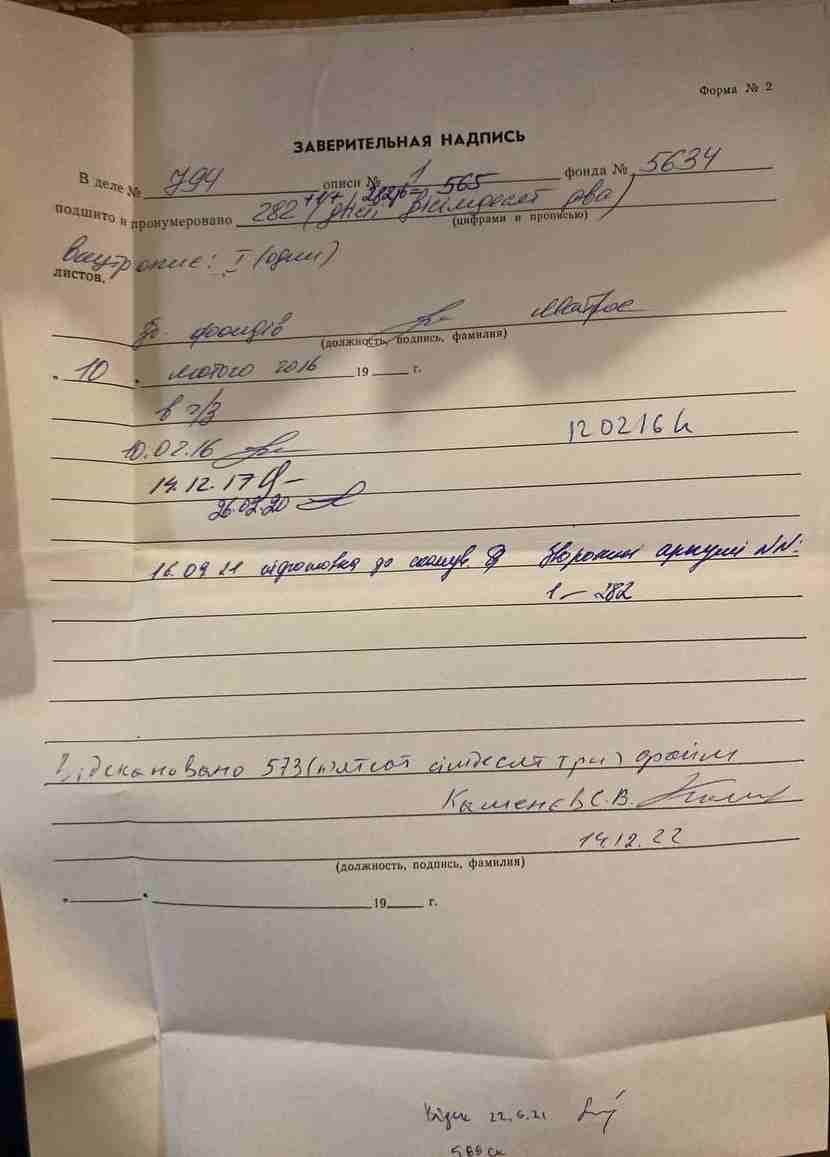 Форма № 2
ЗАВЕРИТЕЛЬНАЯ НАДПИСЬ
В деле № 794 описи № 1 фонда № 5634
+1+ 282 = 565
подшито и пронумеровано 282 (двісті вісімдесят два)
(цифрами и прописью)
Внутр опис: I (один)
листов.
фондів
(должность, подпись, фамилия)
" 10 " лютого 2016 19 г.
в г/з
10.02.16
120216
14.12.17
26.02.20
16.09.21 підготовка до сканув. Зворотні аркуші NN:
1 – 282
Відскановано 573 (пятсот сімдесят три) файли
Каменєв С.В.
14.12.22
(должность, подпись, фамилия)
" " 19 г.
22.6.21